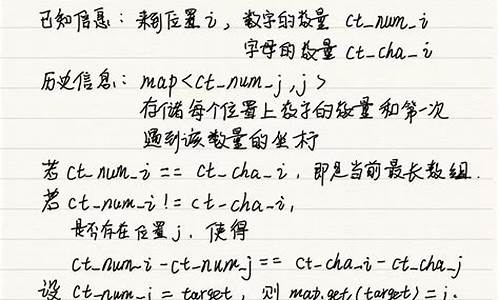 已知信息：来到位置i，数字的数量 ct_num_i
字母的数量 ct_cha_i
历史信息：map<ct_num_j, j>
存储每个位置上数字的数量和第一次
遇到该数量的坐标
若 ct_num_i == ct_cha_i，即是当前最长数组.
若 ct_num_i != ct_cha_i,
是否存在位置j，使得
ct_num_i - ct_num_j == ct_cha_i - ct_cha_j
设 ct_num_j = target，则 map.get(target) = j.